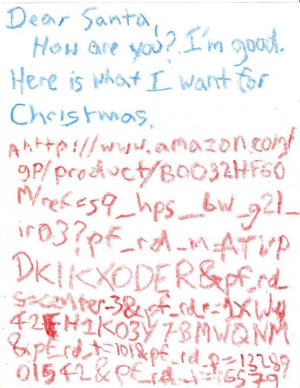 Dear Santa,
How are you? I'm good.
Here is what I want for
Christmas.
A http://www.amazon.com/
gp/product/B0032HF60
M/ref=s9_hps_bw_g21_
ir03?pf_rd_m=ATVP
DKIKX0DER&pf_rd_
s=center-3&pf_rd_r=1XWY
42FH1K03Y7BMWQNM
&pf_rd_t=101&pf_rd_p=12289
01542&pf_rd_i=16579